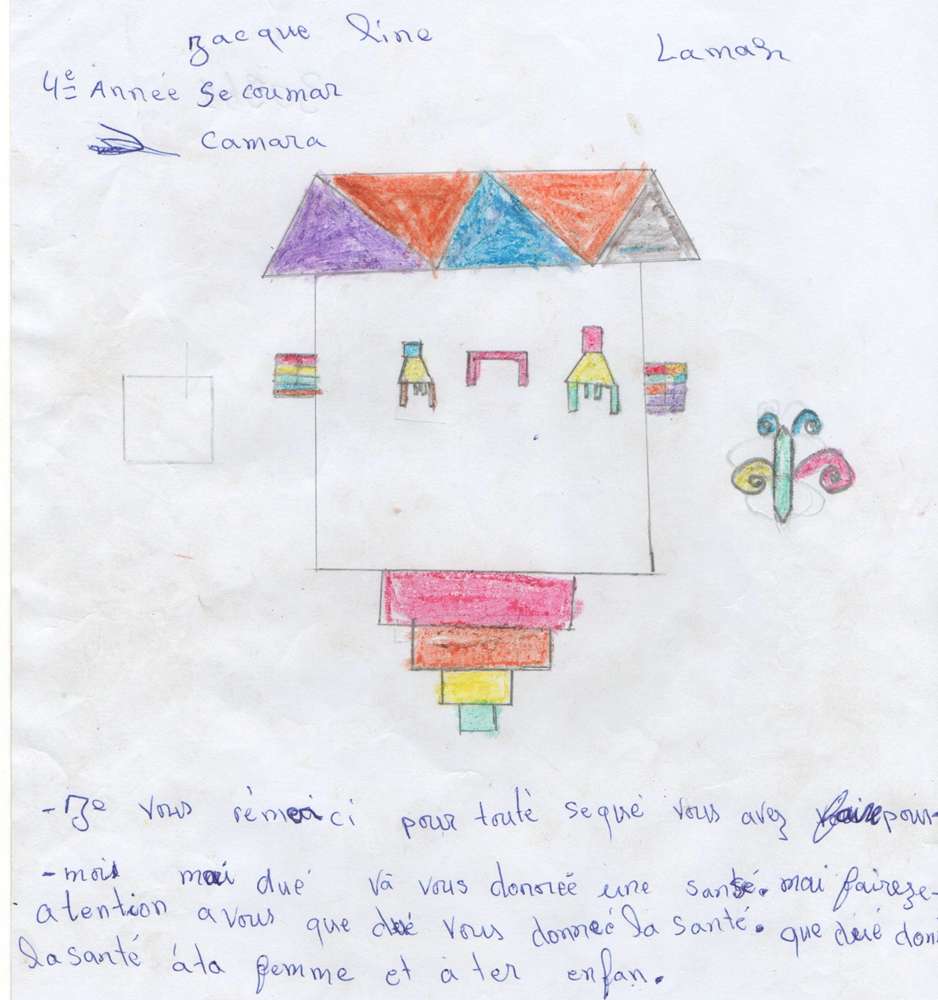 Jacque line
Lamah
4e Année Secoumar
Camara
- Je vous rémerci pour touté sequé vous avez faire pour-
- moi mai dué va vous donnéé une santé. mai faireze-
atention a vous que dué vous donneé la santé. que dué don
la santé áta femme et à ter enfan.